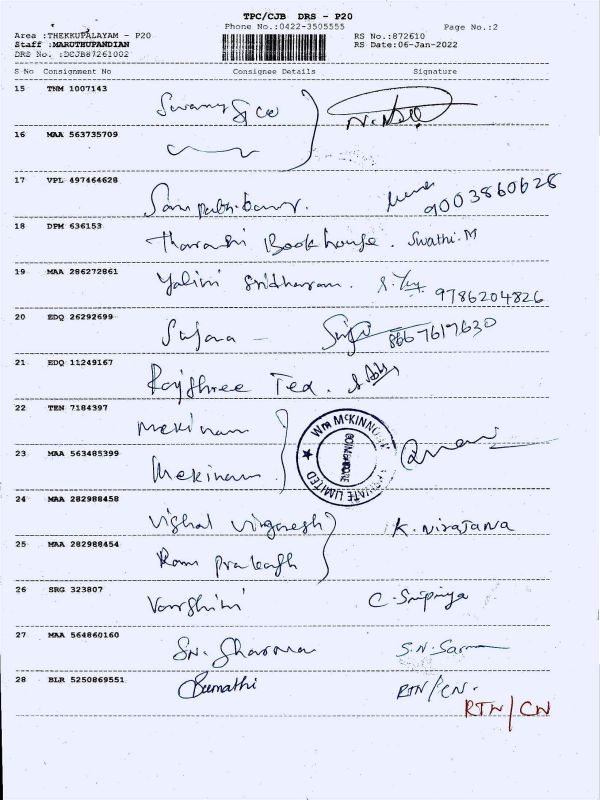 TPC/CJB DRS - P20
Phone No.:0422-3505555
Page No.:2
Area :THEKKUPALAYAM - P20
RS No.:872610
Staff :MARUTHUPANDIAN
RS Date:06-Jan-2022
DRS No. :DCJB87261002
S No Consignment No Consignee Details Signature
15 TNM 1007143
Swamy & co
16 MAA 563735709
17 VPL 497464628
9003860628
18 DPM 636153
Tharani Book house. Swathi.M
19 MAA 286272861
Yalini Sridharan.
9786204826
20 EDQ 26292699
Sujana -
8667617630
21 EDQ 11249167
Rajshree Tex.
22 TEN 7184397
Mekinam
WM MCKINNON
PRIVATE LIMITED
23 MAA 563485399
Mekinam.
24 MAA 282988458
Vishal Vignesh
K. Nirajana
25 MAA 282988454
Ram prakash
26 SRG 323807
Varshini C. Sripriya
27 MAA 564860160
SN. Sharma S.N. Sarma
28 BLR 5250869551
Sumathi RTN/CN.
RTN/CN